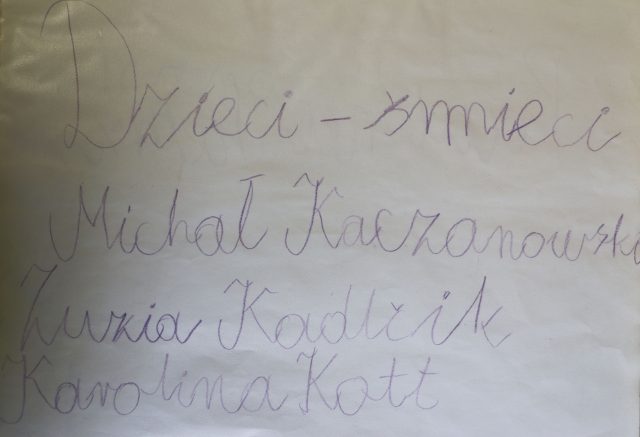 Dzieci - śmieci
Michał Kaczanowski
Zuzia Kadlcik
Karolina Kott